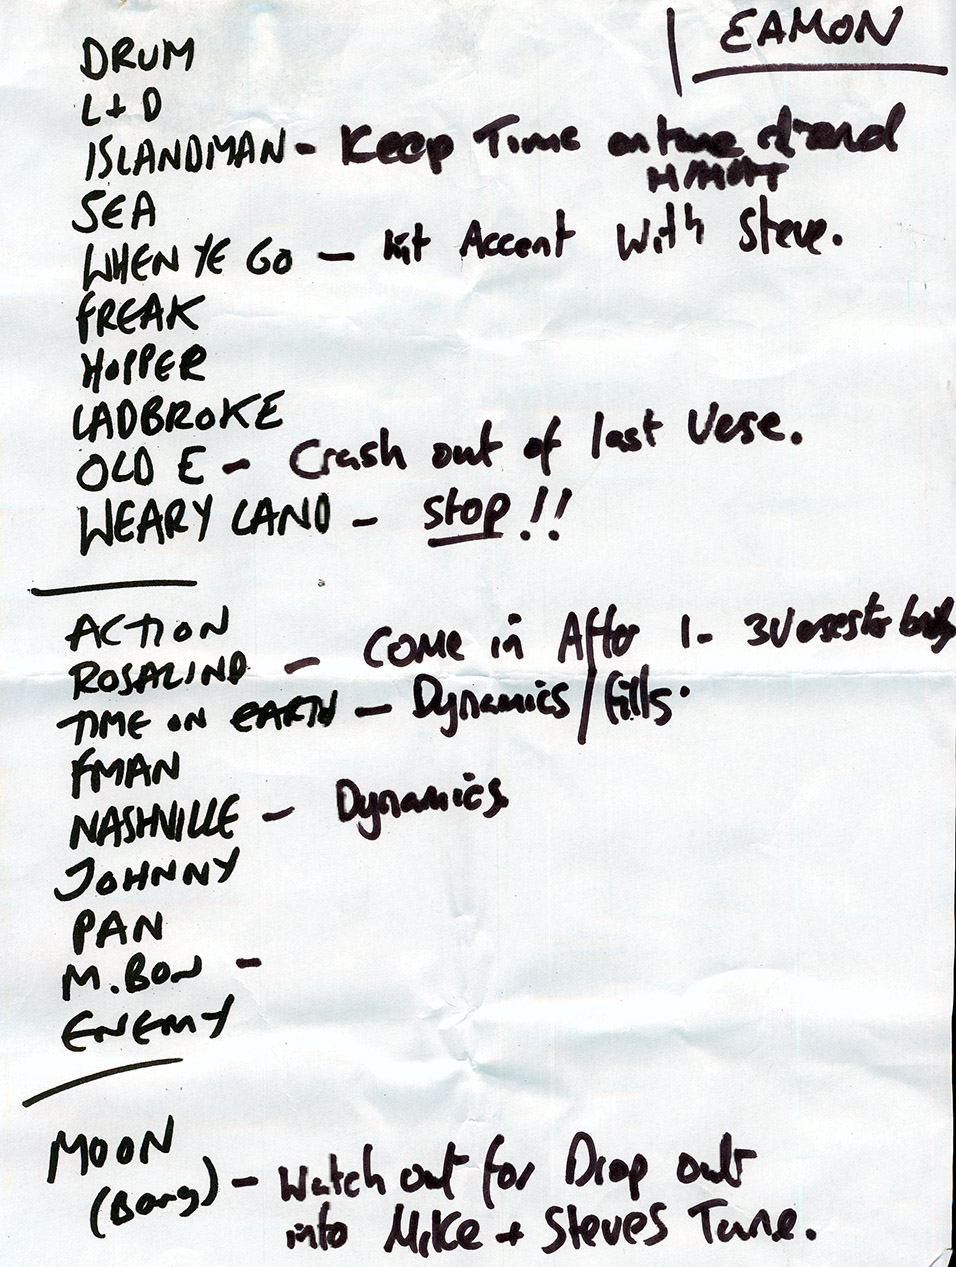 EAMON
DRUM
L+D
ISLANDMAN - Keep Time on tune + and
SEA
WHEN YE GO - hit Accent With Steve.
FREAK
HOPPER
LADBROKE
OLD E - Crash out of last Verse.
WEARY LAND - STOP!!
ACTION
ROSALIND - COME in After 1 - 3 Verses
TIME ON EARTH - Dynamics/fills.
FMAN
NASHVILLE - Dynamics.
JOHNNY
PAN
M.BON -
ENEMY
MOON
(Borg) - Watch out for Drop out
into Mike + Steves Tune.